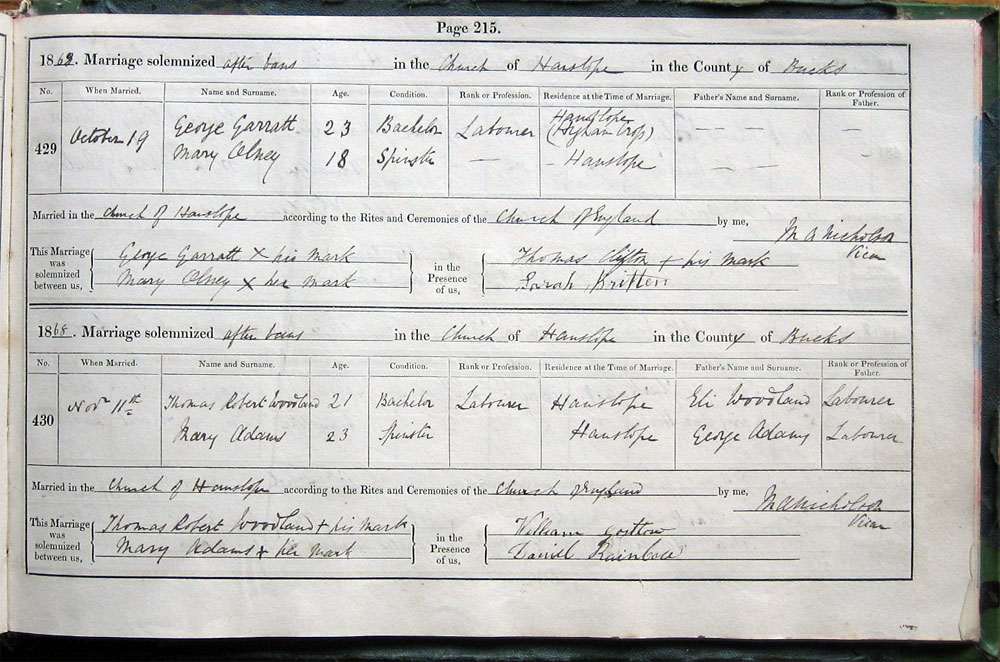 Page 215.
1868. Marriage solemnized after bans in the Church of Hanslope in the County of Bucks
No. When Married. Name and Surname. Age. Condition. Rank or Profession. Residence at the Time of Marriage. Father's Name and Surname. Rank or Profession of Father.
429 October 19 George Garratt 23 Bachelor Labourer Hanslope (Higham Cross) — — —
Mary Olney 18 Spinster — Hanslope — — —
Married in the Church of Hanslope according to the Rites and Ceremonies of the Church of England by me, M A Nicholson
Vicar
This Marriage was solemnized between us, George Garratt x his mark in the Presence of us, Thomas Clifton + his mark
Mary Olney x her mark Sarah Britten
1868. Marriage solemnized after bans in the Church of Hanslope in the County of Bucks
No. When Married. Name and Surname. Age. Condition. Rank or Profession. Residence at the Time of Marriage. Father's Name and Surname. Rank or Profession of Father.
430 Novr 11th Thomas Robert Woodland 21 Bachelor Labourer Hanslope Eli Woodland Labourer
Mary Adams 23 Spinster Hanslope George Adams Labourer
Married in the Church of Hanslope according to the Rites and Ceremonies of the Church of England by me, M A Nicholson
Vicar
This Marriage was solemnized between us, Thomas Robert Woodland + his mark in the Presence of us, William
Mary Adams x her mark Daniel Rainbow